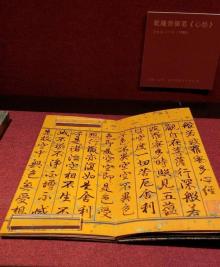 御笔《心经》
般若波羅蜜多心經
觀自在菩薩行深般若
波羅蜜多時照見五蘊
皆空度一切苦厄舍利
子色不異空空不異色
色即是空空即是色受
想行識亦復如是舍利
子是諸法空相不生不
滅不垢不淨不增不減
是故空中無色無受想